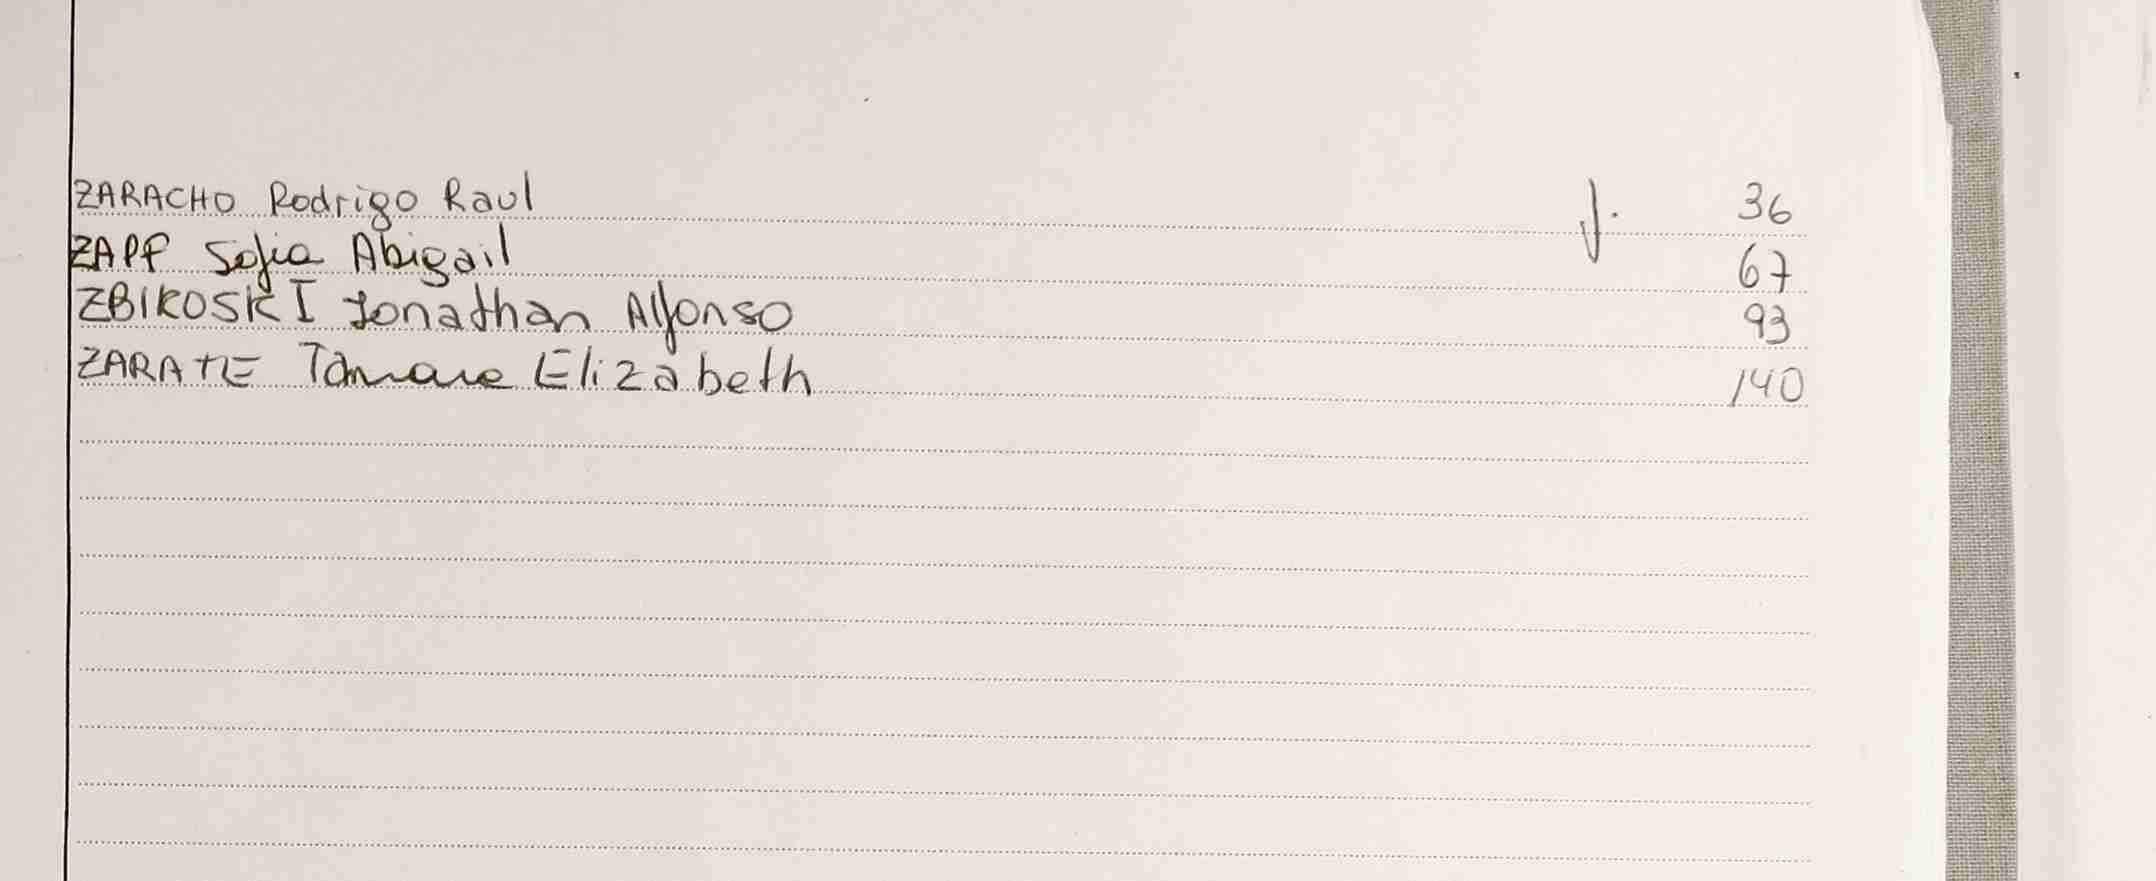 ZARACHO Rodrigo Raul f. 36
ZAPF Sofia Abigail 67
ZBIKOSKI Jonathan Alfonso 93
ZARATE Tamara Elizabeth 140